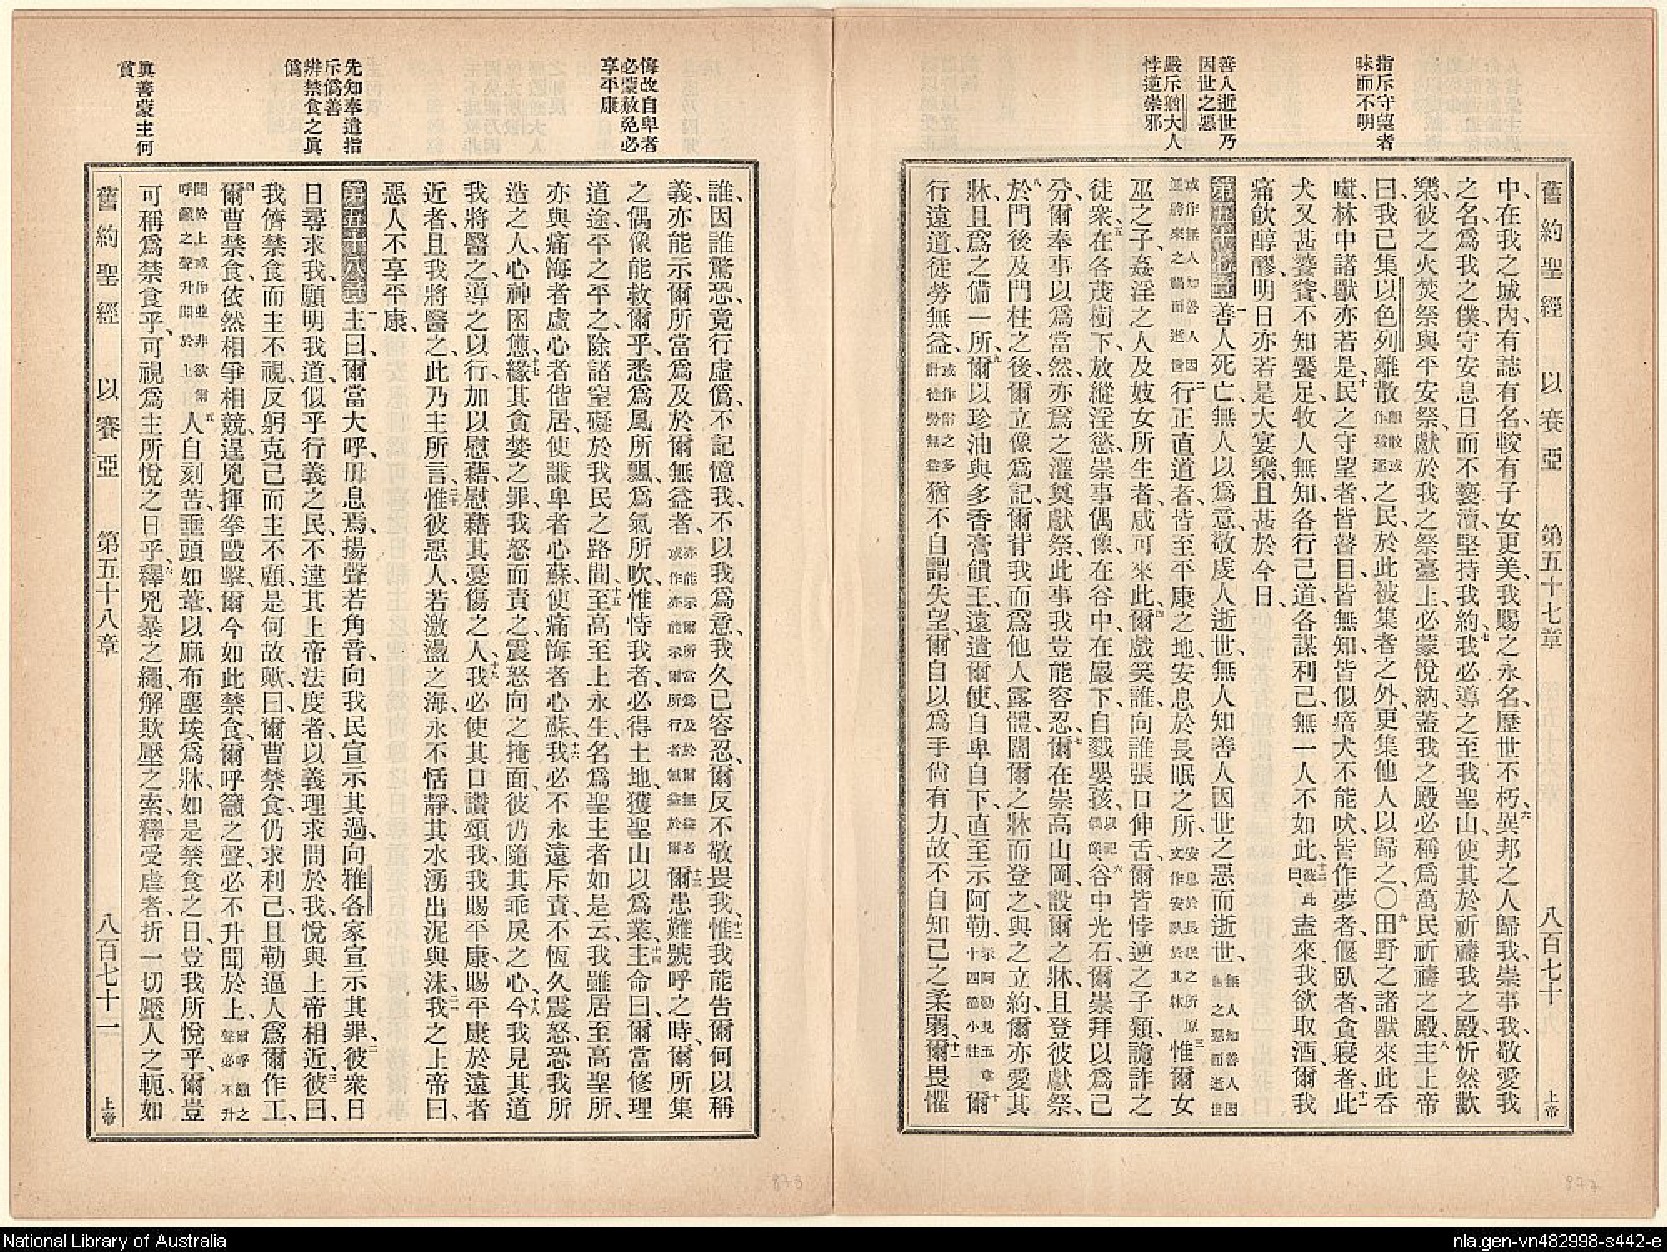 舊約聖經　以賽亞　第五十七章　八百七十　上帝
指斥守望者
昧而不明
善人逝世乃
因世之惡
嚴斥猶大人
悖逆崇邪
中在我之城內有誌有名較有子女更美我賜之永名歷世不朽六異邦之人歸我崇事我敬愛我
之名爲我之僕守安息日而不褻瀆堅持我約七我必導之至我聖山使其於祈禱我之殿忻然歡
樂彼之火焚祭與平安祭獻於我之祭臺上必蒙悅納蓋我之殿必稱爲萬民祈禱之殿八主上帝
曰我已集以色列離散之民於此被集者之外更集他人以歸之〇九田野之諸獸來此吞
噬林中諸獸亦若是十民之守望者皆瞽目皆無知皆似瘖犬不能吠皆作夢者偃臥者貪寢者十一此
犬又甚饕餮不知饜足牧人無知各行己道各謀利己無一人不如此十二曰盍來我欲取酒爾我
痛飲醇醪明日亦若是大宴樂且甚於今日
第五十七章一善人死亡無人以爲意敬虔人逝世無人知善人因世之惡而逝世無人知善人因世之惡而逝世
或作無人知善人因逝將來之禍而逝世二行正直道者皆至平康之地安息於長眠之所安息於長眠之所原文作安臥於其牀三惟爾女
巫之子姦淫之人及妓女所生者咸可來此四爾戲笑誰向誰張口伸舌爾皆悖逆之子類詭詐之
徒衆五在各茂樹下放縱淫慾崇事偶像在谷中在巖下自戮嬰孩六谷中光石爾崇拜以爲己
分爾奉事以爲當然亦爲之灌奠獻祭此事我豈能容忍七爾在崇高山岡設爾之牀且登彼獻祭
八於門後及門柱之後爾立像爲記爾背我而爲他人露體闊爾之牀而登之與之立約爾亦愛其
牀且爲之備一所九爾以珍油與多香膏饋王遠遣爾使自卑自下直至示阿勒示阿勒見五章十四節小註十爾
行遠道徒勞無益猶不自謂失望爾自以爲手尙有力故不自知己之柔弱十一爾畏懼
悔改自卑者
必蒙赦免必
享平康
先知奉遣指
斥僞善
辨禁食之眞
僞
眞善蒙主何
賞
誰因誰驚恐竟行虛僞不記憶我不以我爲意我久已容忍爾反不敬畏我十二惟我能告爾何以稱
義亦能示爾所當爲及於爾無益者亦能示爾所當爲及於爾無益者或作亦能示爾所行者無益於爾十三爾患難號呼之時爾所集
之偶像能救爾乎悉爲風所飄爲氣所吹惟恃我者必得土地獲聖山以爲業十四主命曰爾當修理
道途平之平之除諸窒礙於我民之路間十五至高至上永生名爲聖主者如是云我雖居至高聖所
亦與痛悔者虛心者偕居使謙卑者心蘇使痛悔者心蘇十六我必不永遠斥責不恆久震怒恐我所
造之人心神困憊十七緣其貪婪之罪我怒而責之震怒向之掩面彼仍隨其乖戾之心十八今我見其道
我將醫之導之以行加以慰藉慰藉其憂傷之人十九我必使其口讚頌我我賜平康賜平康於遠者
近者且我將醫之此乃主所言二十惟彼惡人若激盪之海永不恬靜其水湧出泥與沫二一我之上帝曰
惡人不享平康
第五十八章一主曰爾當大呼毋息焉揚聲若角音向我民宣示其過向雅各家宣示其罪二彼衆日
日尋求我願明我道似乎行義之民不違其上帝法度者以義理求問於我悅與上帝相近三彼曰
我儕禁食而主不視反躬克己而主不顧是何故歟曰爾曹禁食仍求利己且勒逼人爲爾作工
四爾曹禁食依然相爭相競逞兇揮拳毆擊爾今如此禁食爾呼籲之聲必不升聞於上爾呼籲之聲必不升
聞於上或作並非欲爾呼籲之聲升聞於上五人自刻苦垂頭如葦以麻布塵埃爲牀如是禁食之日豈我所悅乎爾豈
可稱爲禁食乎可視爲主所悅之日乎六釋兇暴之繩解欺壓之索釋受虐者折一切壓人之軛如
舊約聖經　以賽亞　第五十八章　八百七十一　上帝
National Library of Australia
nla.gen-vn482998-s442-e